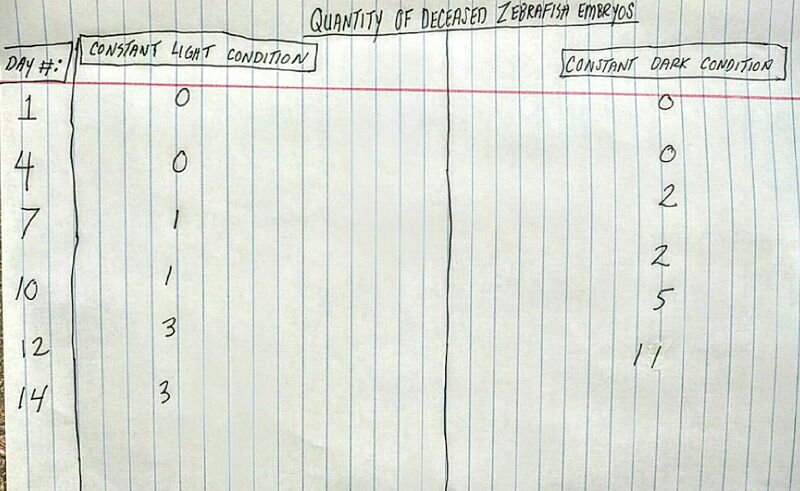 QUANTITY OF DECEASED ZEBRAFISH EMBRYOS
DAY #: CONSTANT LIGHT CONDITION CONSTANT DARK CONDITION
1 0 0
4 0 0
7 1 2
10 1 2
12 3 5
14 3 11